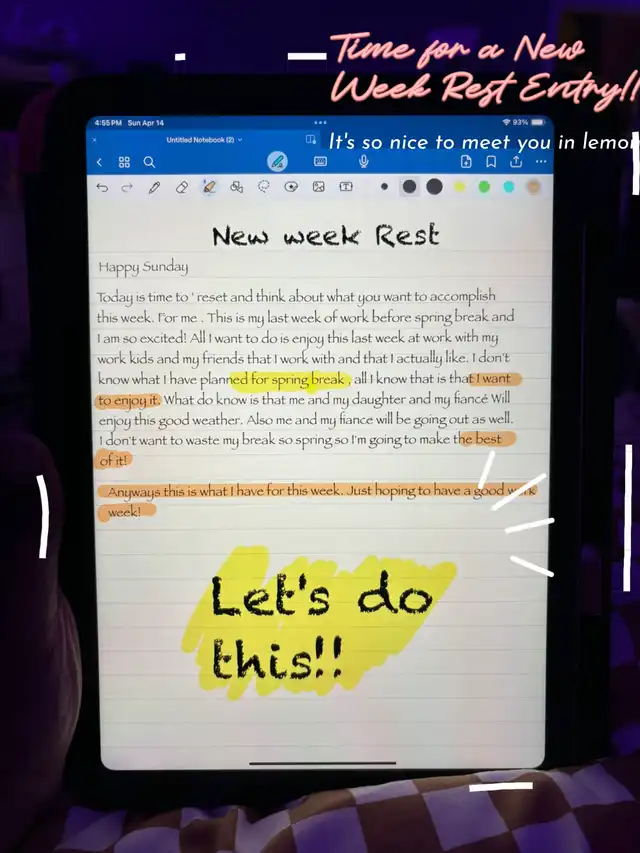 Time for a New
Week Rest Entry!!
4:55PM Sun Apr 14
93%
Untitled Notebook (2)
It's so nice to meet you in lemon
New week Rest
Happy Sunday
Today is time to ' reset and think about what you want to accomplish
this week. For me . This is my last week of work before spring break and
I am so excited! All I want to do is enjoy this last week at work with my
work kids and my friends that I work with and that I actually like. I don't
know what I have planned for spring break , all I know that is that I want
to enjoy it. What do know is that me and my daughter and my fiancé Will
enjoy this good weather. Also me and my fiance will be going out as well.
I don't want to waste my break so spring so I'm going to make the best
of it!
Anyways this is what I have for this week. Just hoping to have a good work
week!
Let's do
this!!